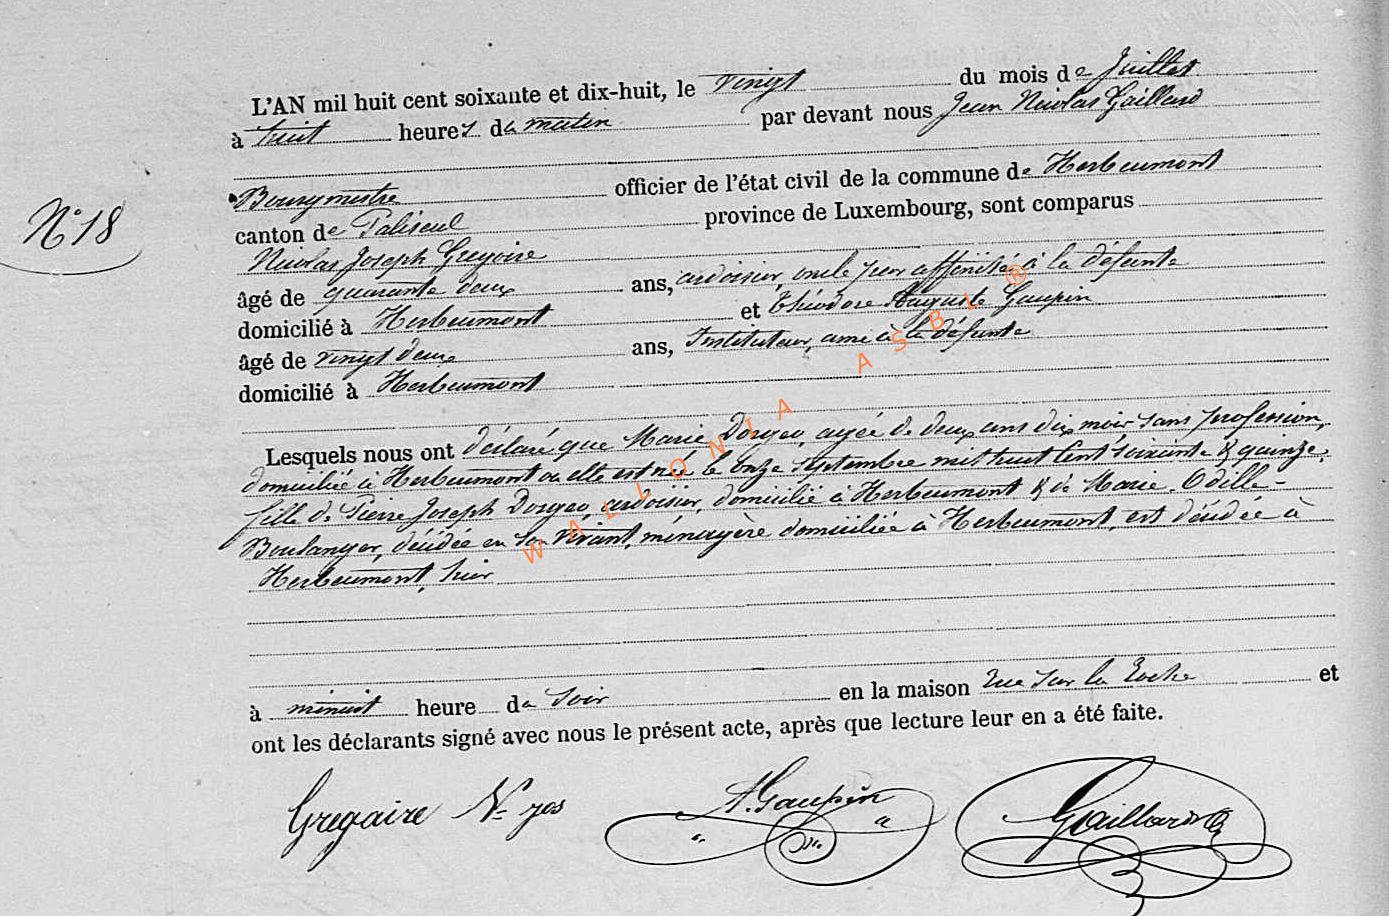 L'AN mil huit cent soixante et dix-huit, le vingt du mois de Juillet
à huit heures du matin par devant nous Jean Nicolas Gaillard
Bourgmestre officier de l'état civil de la commune de Herbeumont
N° 18
canton de Paliseul province de Luxembourg, sont comparus
Nicolas Joseph Gregoire
âgé de quarante deux ans, ardoisier, oncle par affinité à la défunte
domicilié à Herbeumont et Théodore Auguste Gaupin
âgé de vingt deux ans, Instituteur, ami à la défunte
domicilié à Herbeumont
Lesquels nous ont déclaré que Marie Dorgeo, agée de deux ans dix mois sans profession,
domicilié à Herbeumont ou elle est née le onze septembre mil huit cent soixante & quinze,
fille de Pierre Joseph Dorgeo, ardoisier, domicilié à Herbeumont & de Marie Odille
Boulanger, décédée en son vivant, ménagère domiciliée à Herbeumont, est décédée à
Herbeumont, hier
à minuit heure du soir en la maison rue sur la Roche et
ont les déclarants signé avec nous le présent acte, après que lecture leur en a été faite.
Gregoire N. jos A. Gaupin Gaillard
WALLONIA ASBL ®